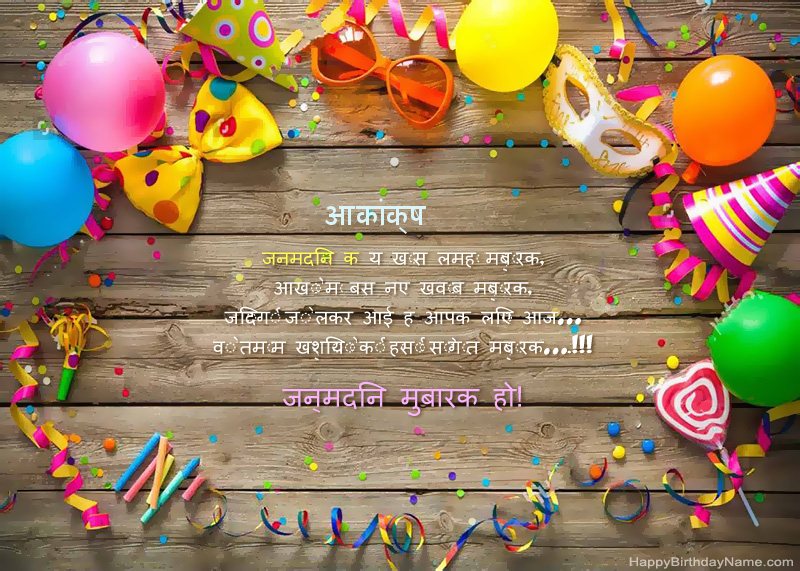 आकांक्ष
जनमदनि क य ख़ास लमह मबुरक,
आखों म बस नए खवाब मबुरक,
जदिगी जो लेकर आई ह आपक लएि आज...
वो तमाम खशुयिों की हसीं सौगात मबुरक....!!!
जन्मदनि मुबारक हो!
HappyBirthdayName.com